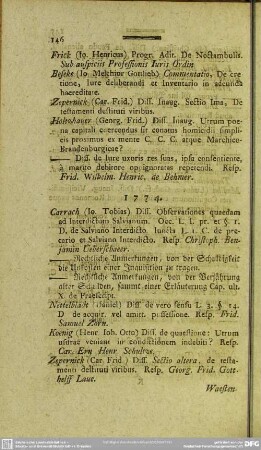 146
Frick (Jo. Henricus) Progr. Adit. De Noctambulis.
Sub auspiciis Professionis Iuris Ordin.
Beseke (Jo Melchior Gottlieb) Commentatio, De cre
tione, iure deliberandi et Inventario in adeunda
haereditate.
Zepernick (Car. Frid.) Diss. Inaug. Sectio Ima, De
testamenti destituti viribus.
Holtzhauer (Georg. Frid.) Diff. Inaug. Utrum poe
na capitali coercendus sit conatus homicidii simpli-
cis proximus ex mente C. C. C. atque Marchico-
Brandenburgicae?
Diff. de Iure uxoris res suas, ipsa consentiente,
a marito debitore oppignoratas repetendi. Resp.
Frid. Wilhelm. Henric. de Behmer.
1774.
Carrach (Io. Tobias) Diff. Observationes quaedam
ad Interdictum Salvianum. Occ. L. I. pr. et §. I.
D. de Salviano Interdicto. iuncta L. I. C. de pre-
cario et Salviano Interdicto. Resp. Christoph. Ben-
jamin Ueberscheer.
Rechtliche Anmerkungen, von der Schuldigkeit
die Unkosten einer Inquisition zu tragen.
Rechtliche Anmerkungen, von der Verjährung
alter Schulden, sammt einer Erläuterung Cap. ult.
X. de Praescript.
Nettelbladt (Daniel) Diff. de vero sensu L. 3. §. 14.
D de acquir. vel amit. possessione. Resp. Frid.
Samuel Zorn.
Koenig (Henr. Joh. Otto) Diff. de quaestione: Utrum
usurae veniant in condictionem indebiti? Resp.
Car. Ern Henr. Schultze.
Zepernick (Car. Frid.) Diff. Sectio altera, de testa-
menti destituti viribus. Resp. Georg. Frid. Gott-
helff Laue.
Wuesten